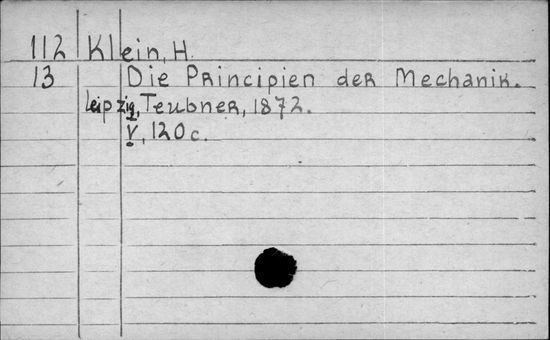 112 Klein, H.
13 Die Principien der Mechanik.
Leipzig, Teubner, 1872.
V, 120 c.